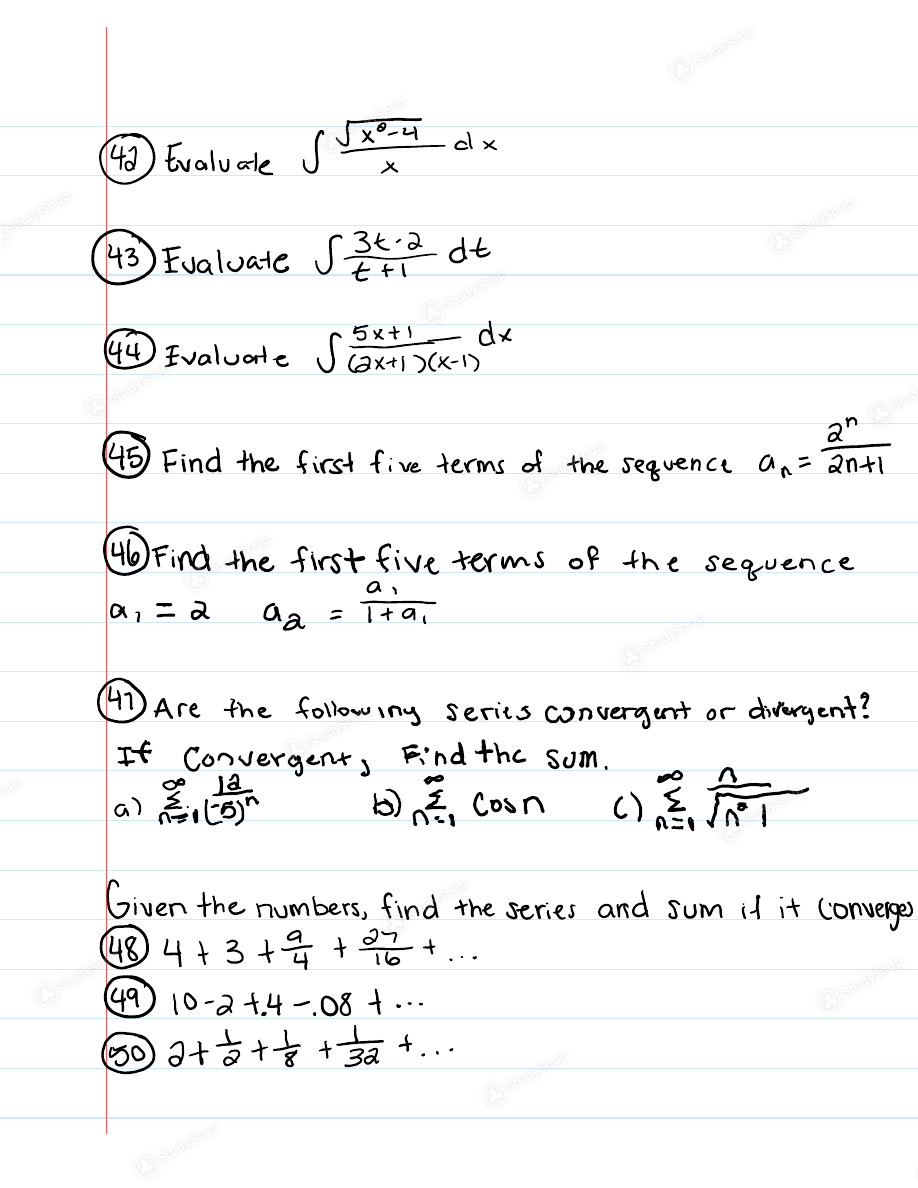 42 Evaluate ∫ √(x²-4)/x dx
43 Evaluate ∫ (3t-2)/(t+1) dt
44 Evaluate ∫ (5x+1)/((2x+1)(x-1)) dx
45 Find the first five terms of the sequence aₙ = 2ⁿ/(2n+1)
46 Find the first five terms of the sequence
a₁ = 2 a₂ = a₁/(1+a₁)
47 Are the following series convergent or divergent?
If Convergent, Find the sum.
a) ∑ₙ₌₁^∞ 12/(-5)ⁿ b) ∑ₙ₌₁^∞ Cos n c) ∑ₙ₌₁^∞
Given the numbers, find the series and sum if it converges
48 4 + 3 + 9/4 + 27/16 + ...
49 10 - 2 + .4 - .08 + ...
50 2 + 1/2 + 1/8 + 1/32 + ...
StudySoup